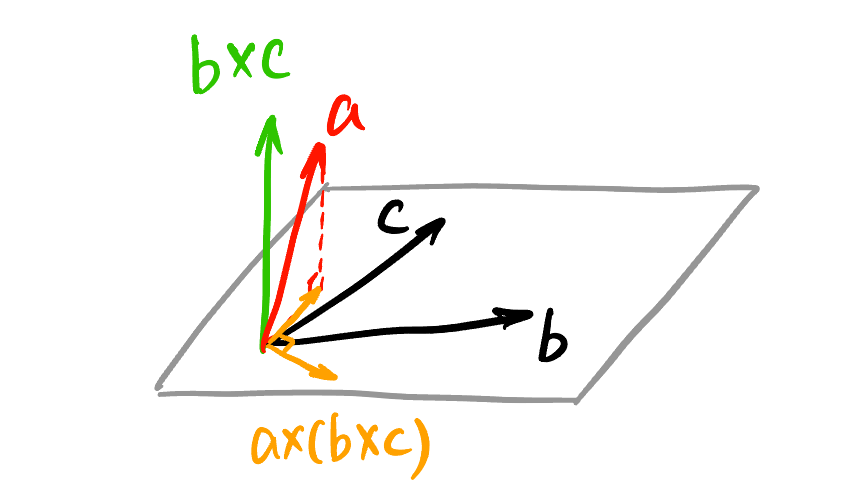 b×c
a
c
b
a×(b×c)